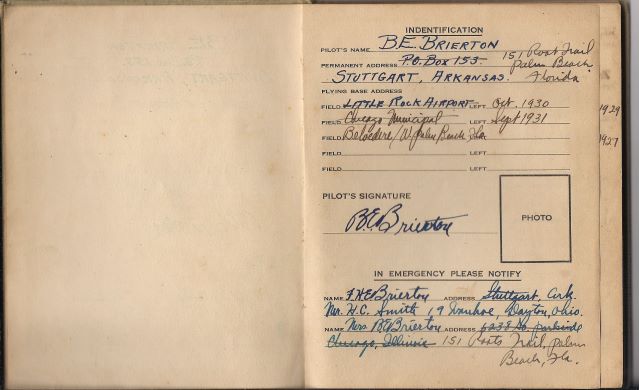 INDENTIFICATION
PILOT'S NAME B.E. BRIERTON
PERMANENT ADDRESS P.O. BOX 153 151 Root Trail
STUTTGART, ARKANSAS. Palm Beach Florida
FLYING BASE ADDRESS
FIELD LITTLE ROCK AIRPORT LEFT Oct. 1930 1929
FIELD Chicago Municipal LEFT Sept 1931
FIELD Belvedere/W. Palm Beach Fla 1927
FIELD LEFT
FIELD LEFT
PILOT'S SIGNATURE
B.E. Brierton
PHOTO
IN EMERGENCY PLEASE NOTIFY
NAME Brierton ADDRESS Stuttgart, Ark.
H.C. Smith 19 Ivanhoe, Dayton, Ohio.
NAME Mrs B.E. Brierton ADDRESS 6238 So. Parkside
Chicago, Illinois 151 Root Trail, Palm
Beach, Fla.